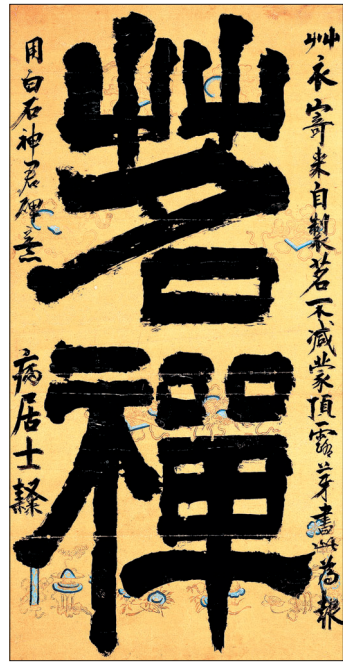 茗禪
艸衣寄来自製茗不減蒙頂露芽書此爲報
用白石神君碑意
病居士隸